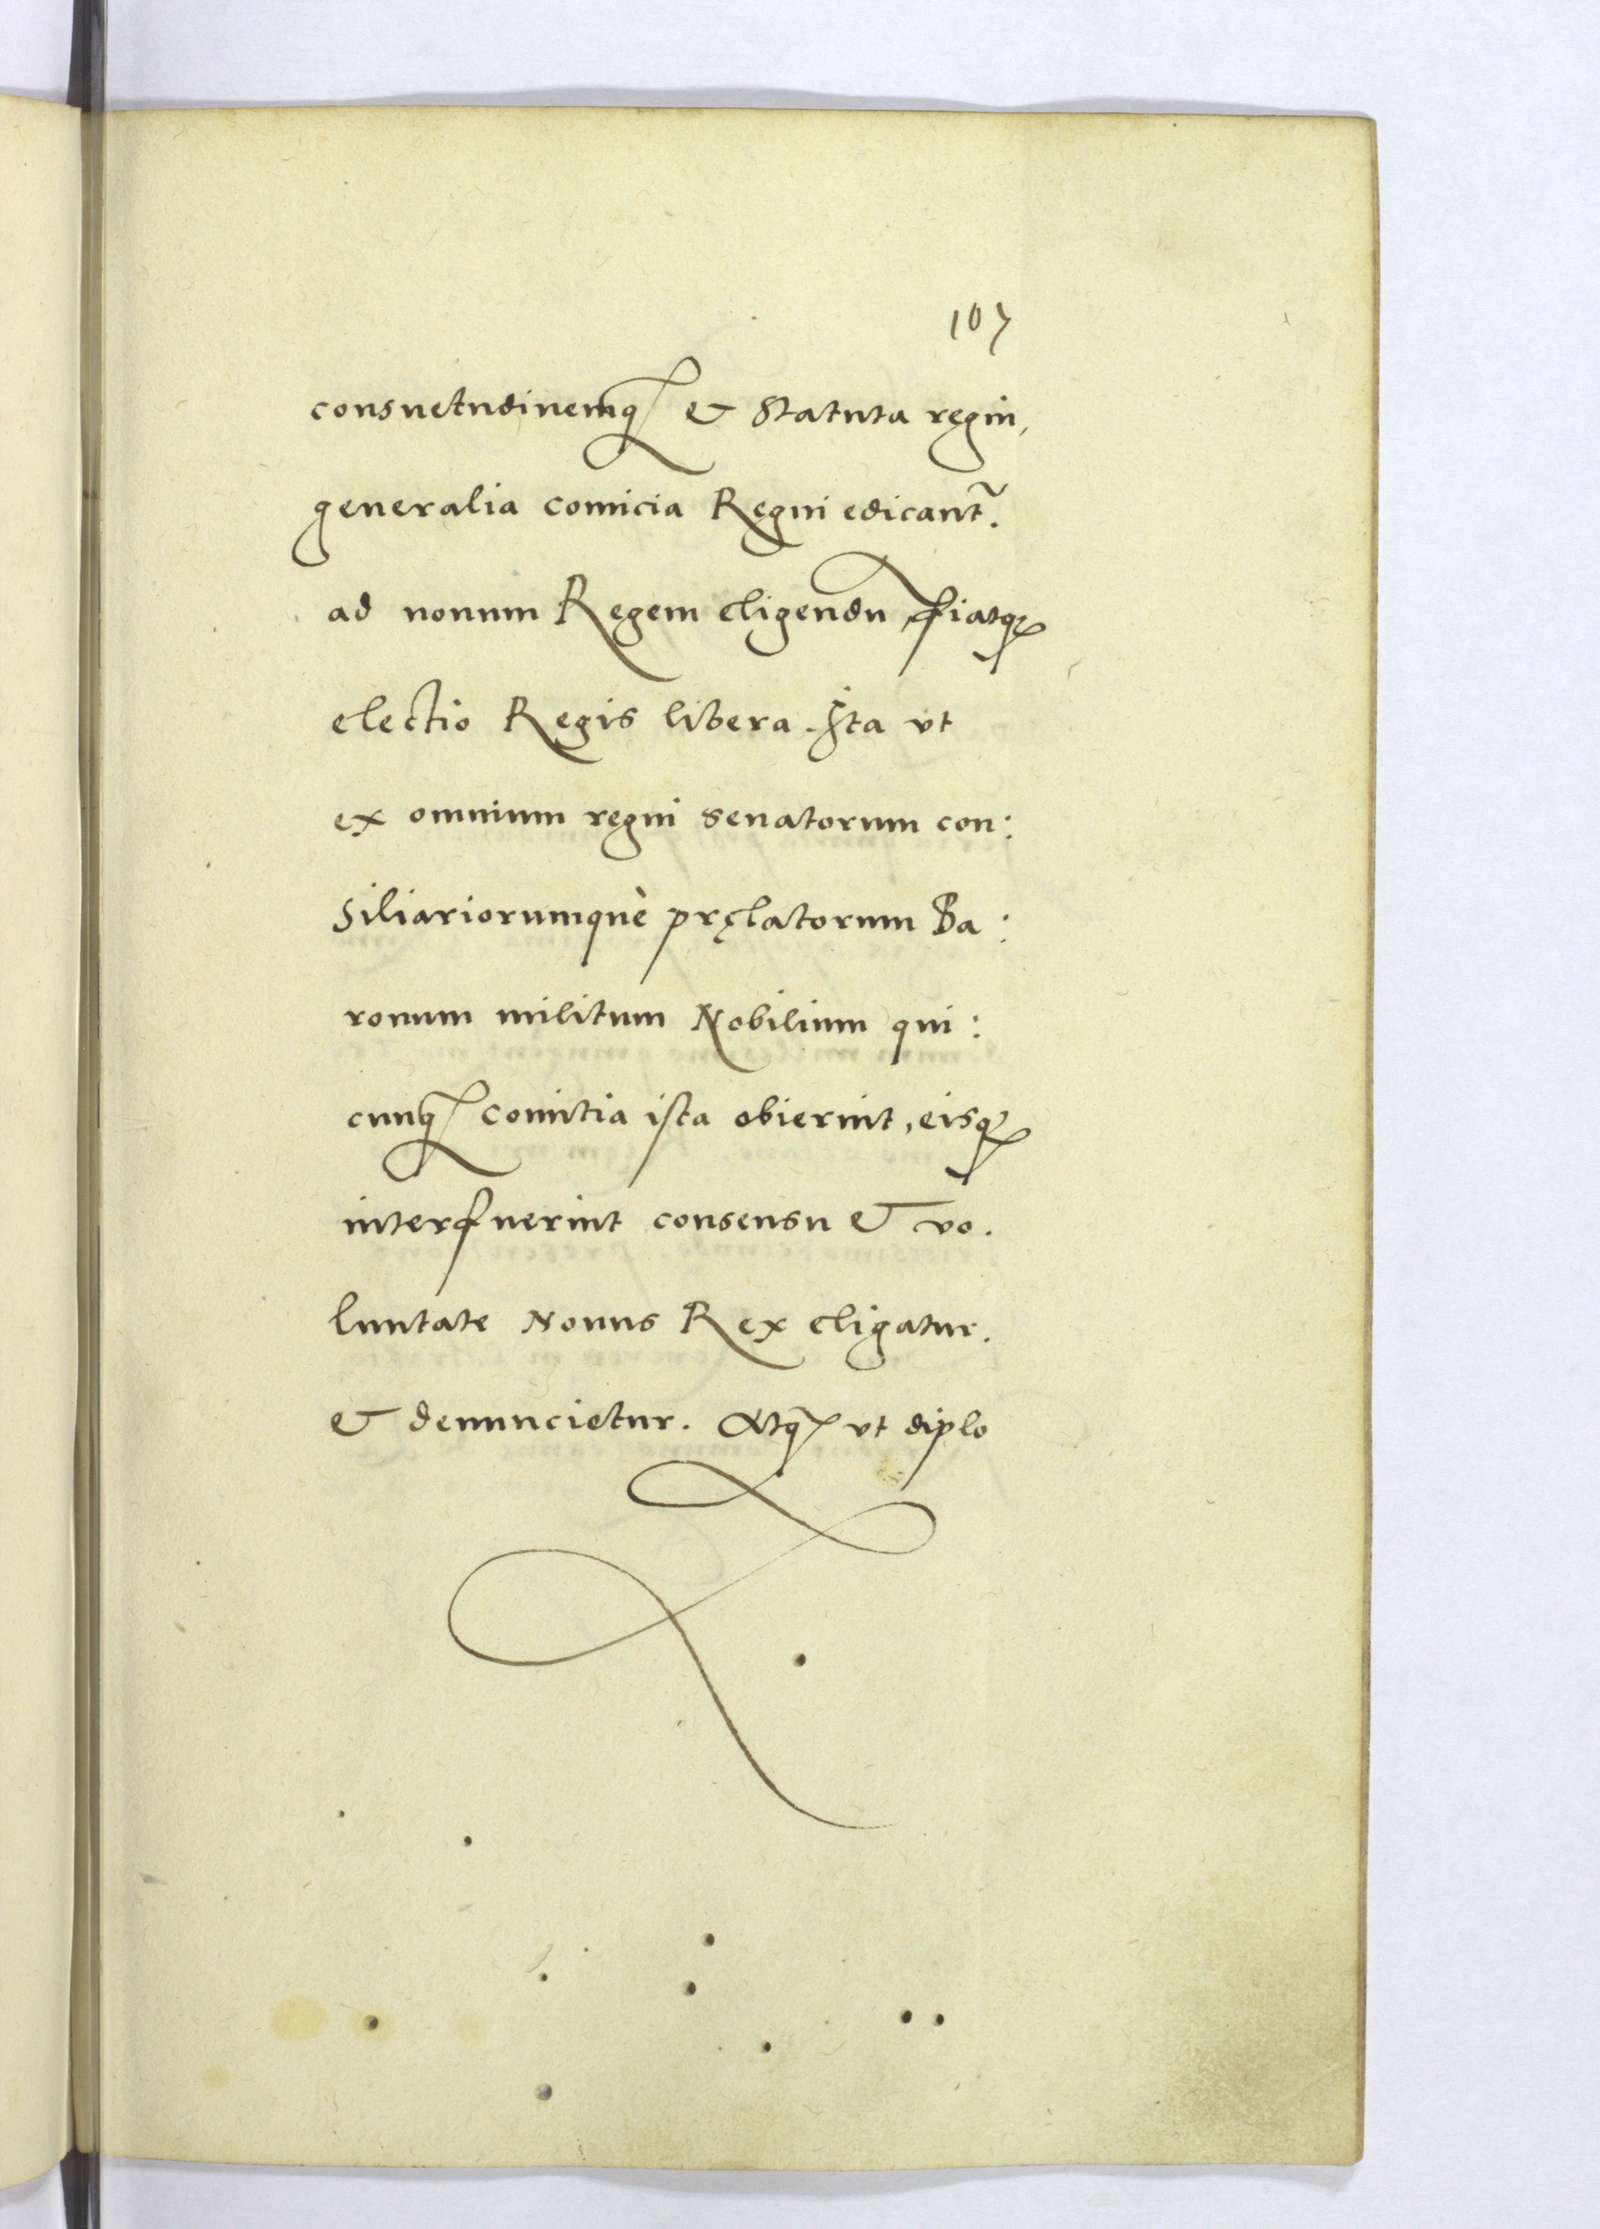 107
consuetudinemq₃ & Statuta regni,
generalia comicia Regni edicant̃.
ad nouum Regem eligendu, fiatq₃
electio Regis libera. Ita vt
ex omnium regni senatorum con:
siliariorumquè pręlatorum Ba:
ronum militum Nobilium qui:
cunq₃ comitia ista obierint, eisq₃
interfuerint consensu & vo.
luntate Nouus Rex eligatur.
& denuncietur. Atq₃ vt diplo